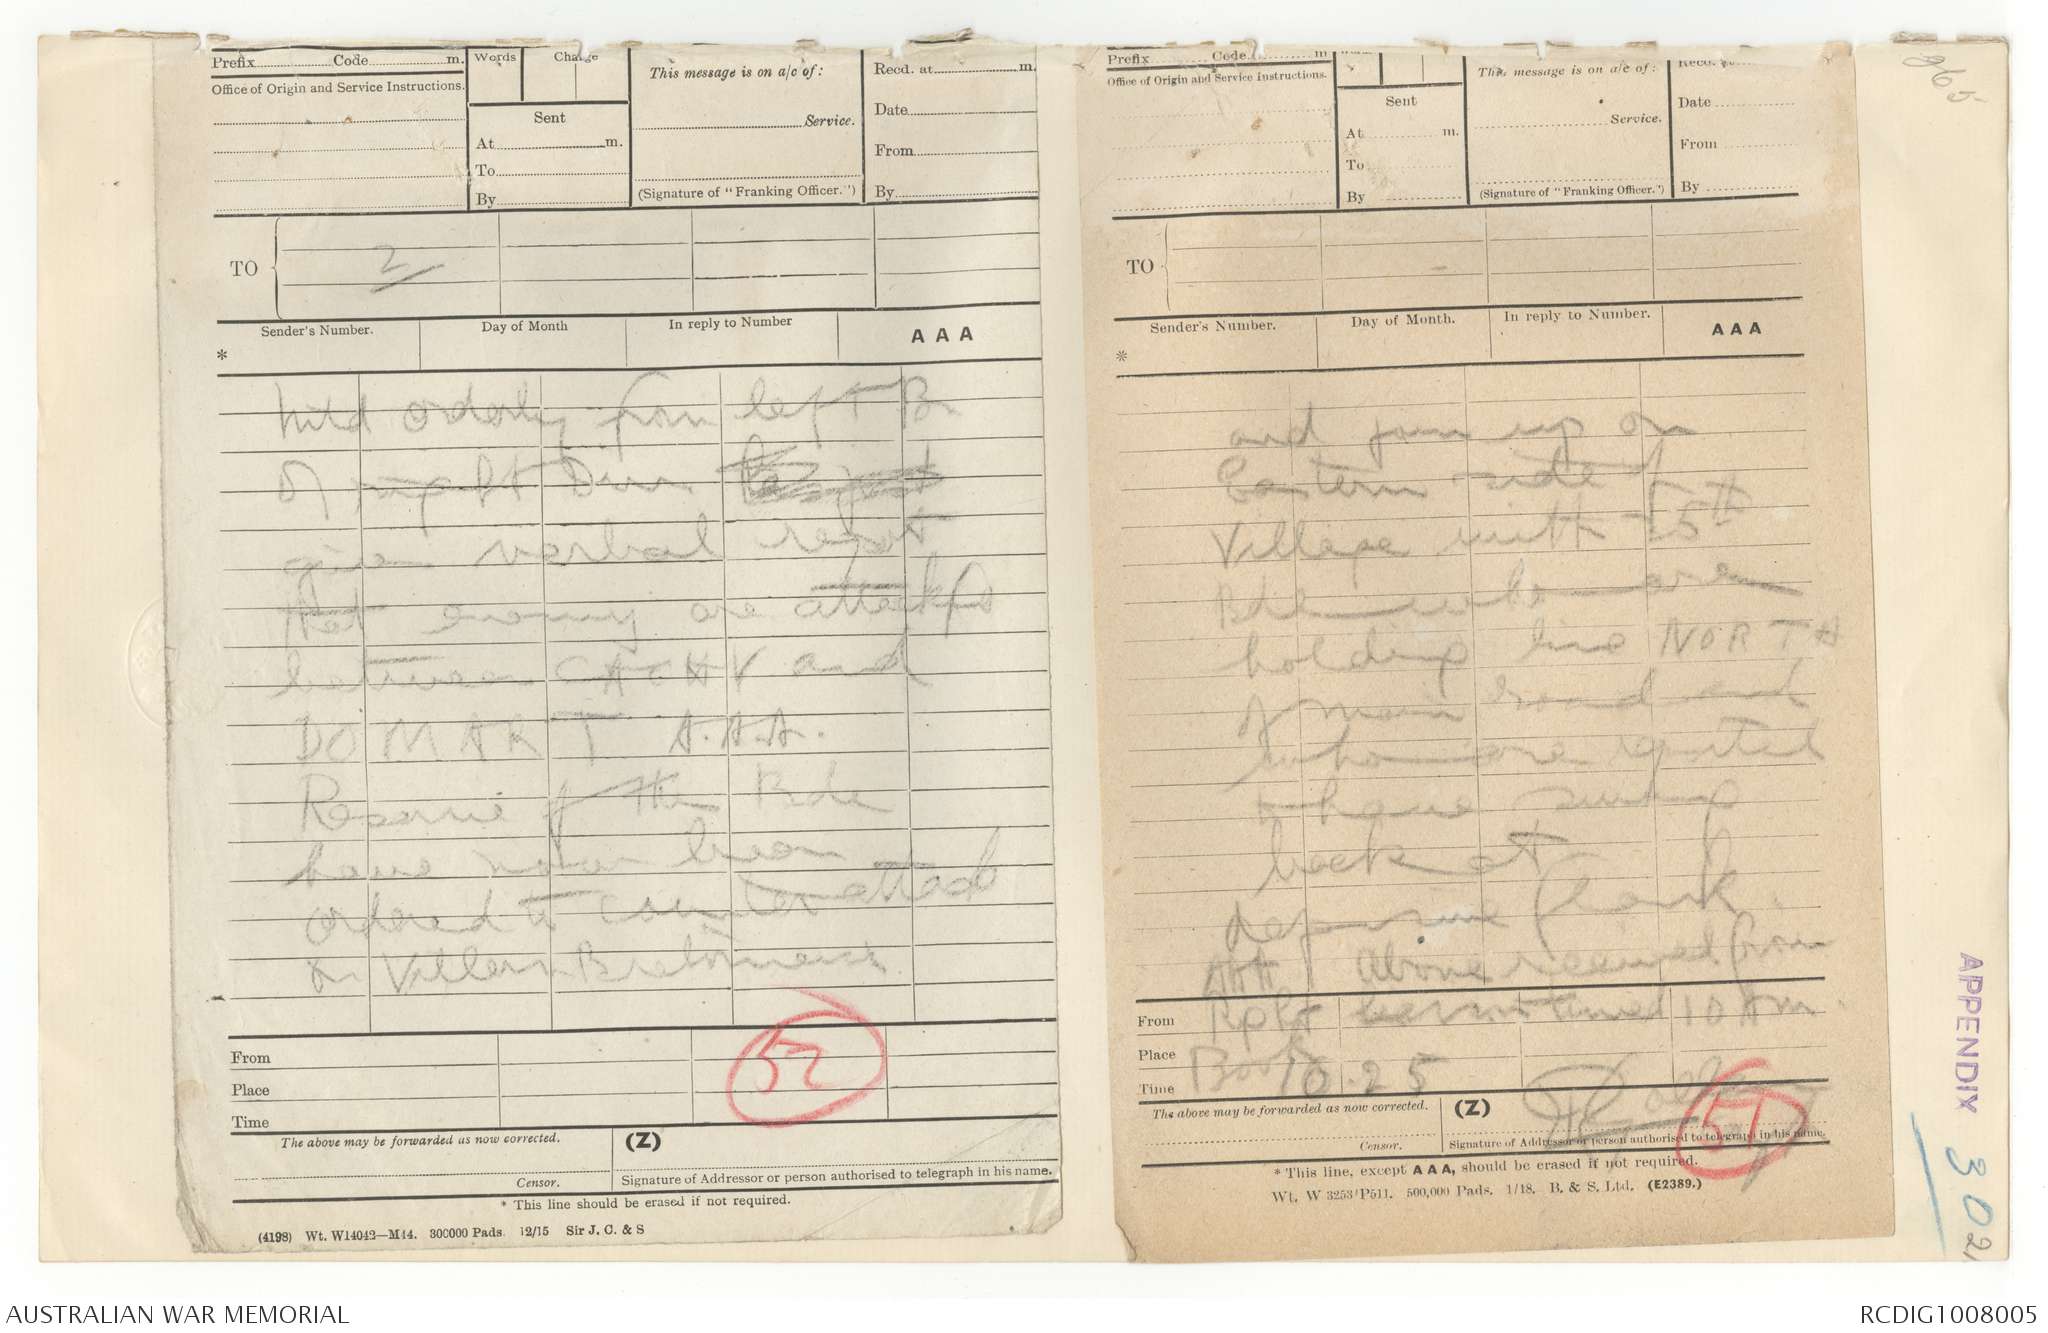 Prefix Code m.
Words
Charge
Office of Origin and Service Instructions.
Sent
At m.
To
By
This message is on a/c of:
Service.
(Signature of "Franking Officer.")
Recd. at m.
Date
From
By
TO
2
Sender's Number.
Day of Month
In reply to Number
AAA
*
orderly from left Bn
of right Divn
give verbal report
that enemy are attackg
between CACHY and
DOMART A.A.A.
Reserve of the Bde
have now been
ordered to counter attack
on Villers Bretonneux
From
Place
Time
52
The above may be forwarded as now corrected.
(Z)
Censor.
Signature of Addressor or person authorised to telegraph in his name.
* This line should be erased if not required.
(4198) Wt. W14042—M44. 300000 Pads. 12/15 Sir J. C. & S
Prefix Code m
Office of Origin and Service Instructions.
Sent
At m.
To
By
This message is on a/c of:
Service.
(Signature of "Franking Officer.")
Recd. at
Date
From
By
TO
Sender's Number.
Day of Month.
In reply to Number.
AAA
*
and join up on
Eastern side of
Village with 15th
Bde who are
holding line NORTH
of main road and
who are reported
to have swung
back at
defensive flank.
AAA above received from
Right timed 10 AM.
From
Place
Time
10.25
51
The above may be forwarded as now corrected.
(Z)
Censor.
Signature of Addressor or person authorised to telegraph in his name.
* This line, except AAA, should be erased if not required.
Wt. W 3253/P511. 500,000 Pads. 1/18. B. & S. Ltd. (E2389.)
APPENDIX
302
AUSTRALIAN WAR MEMORIAL
RCDIG1008005